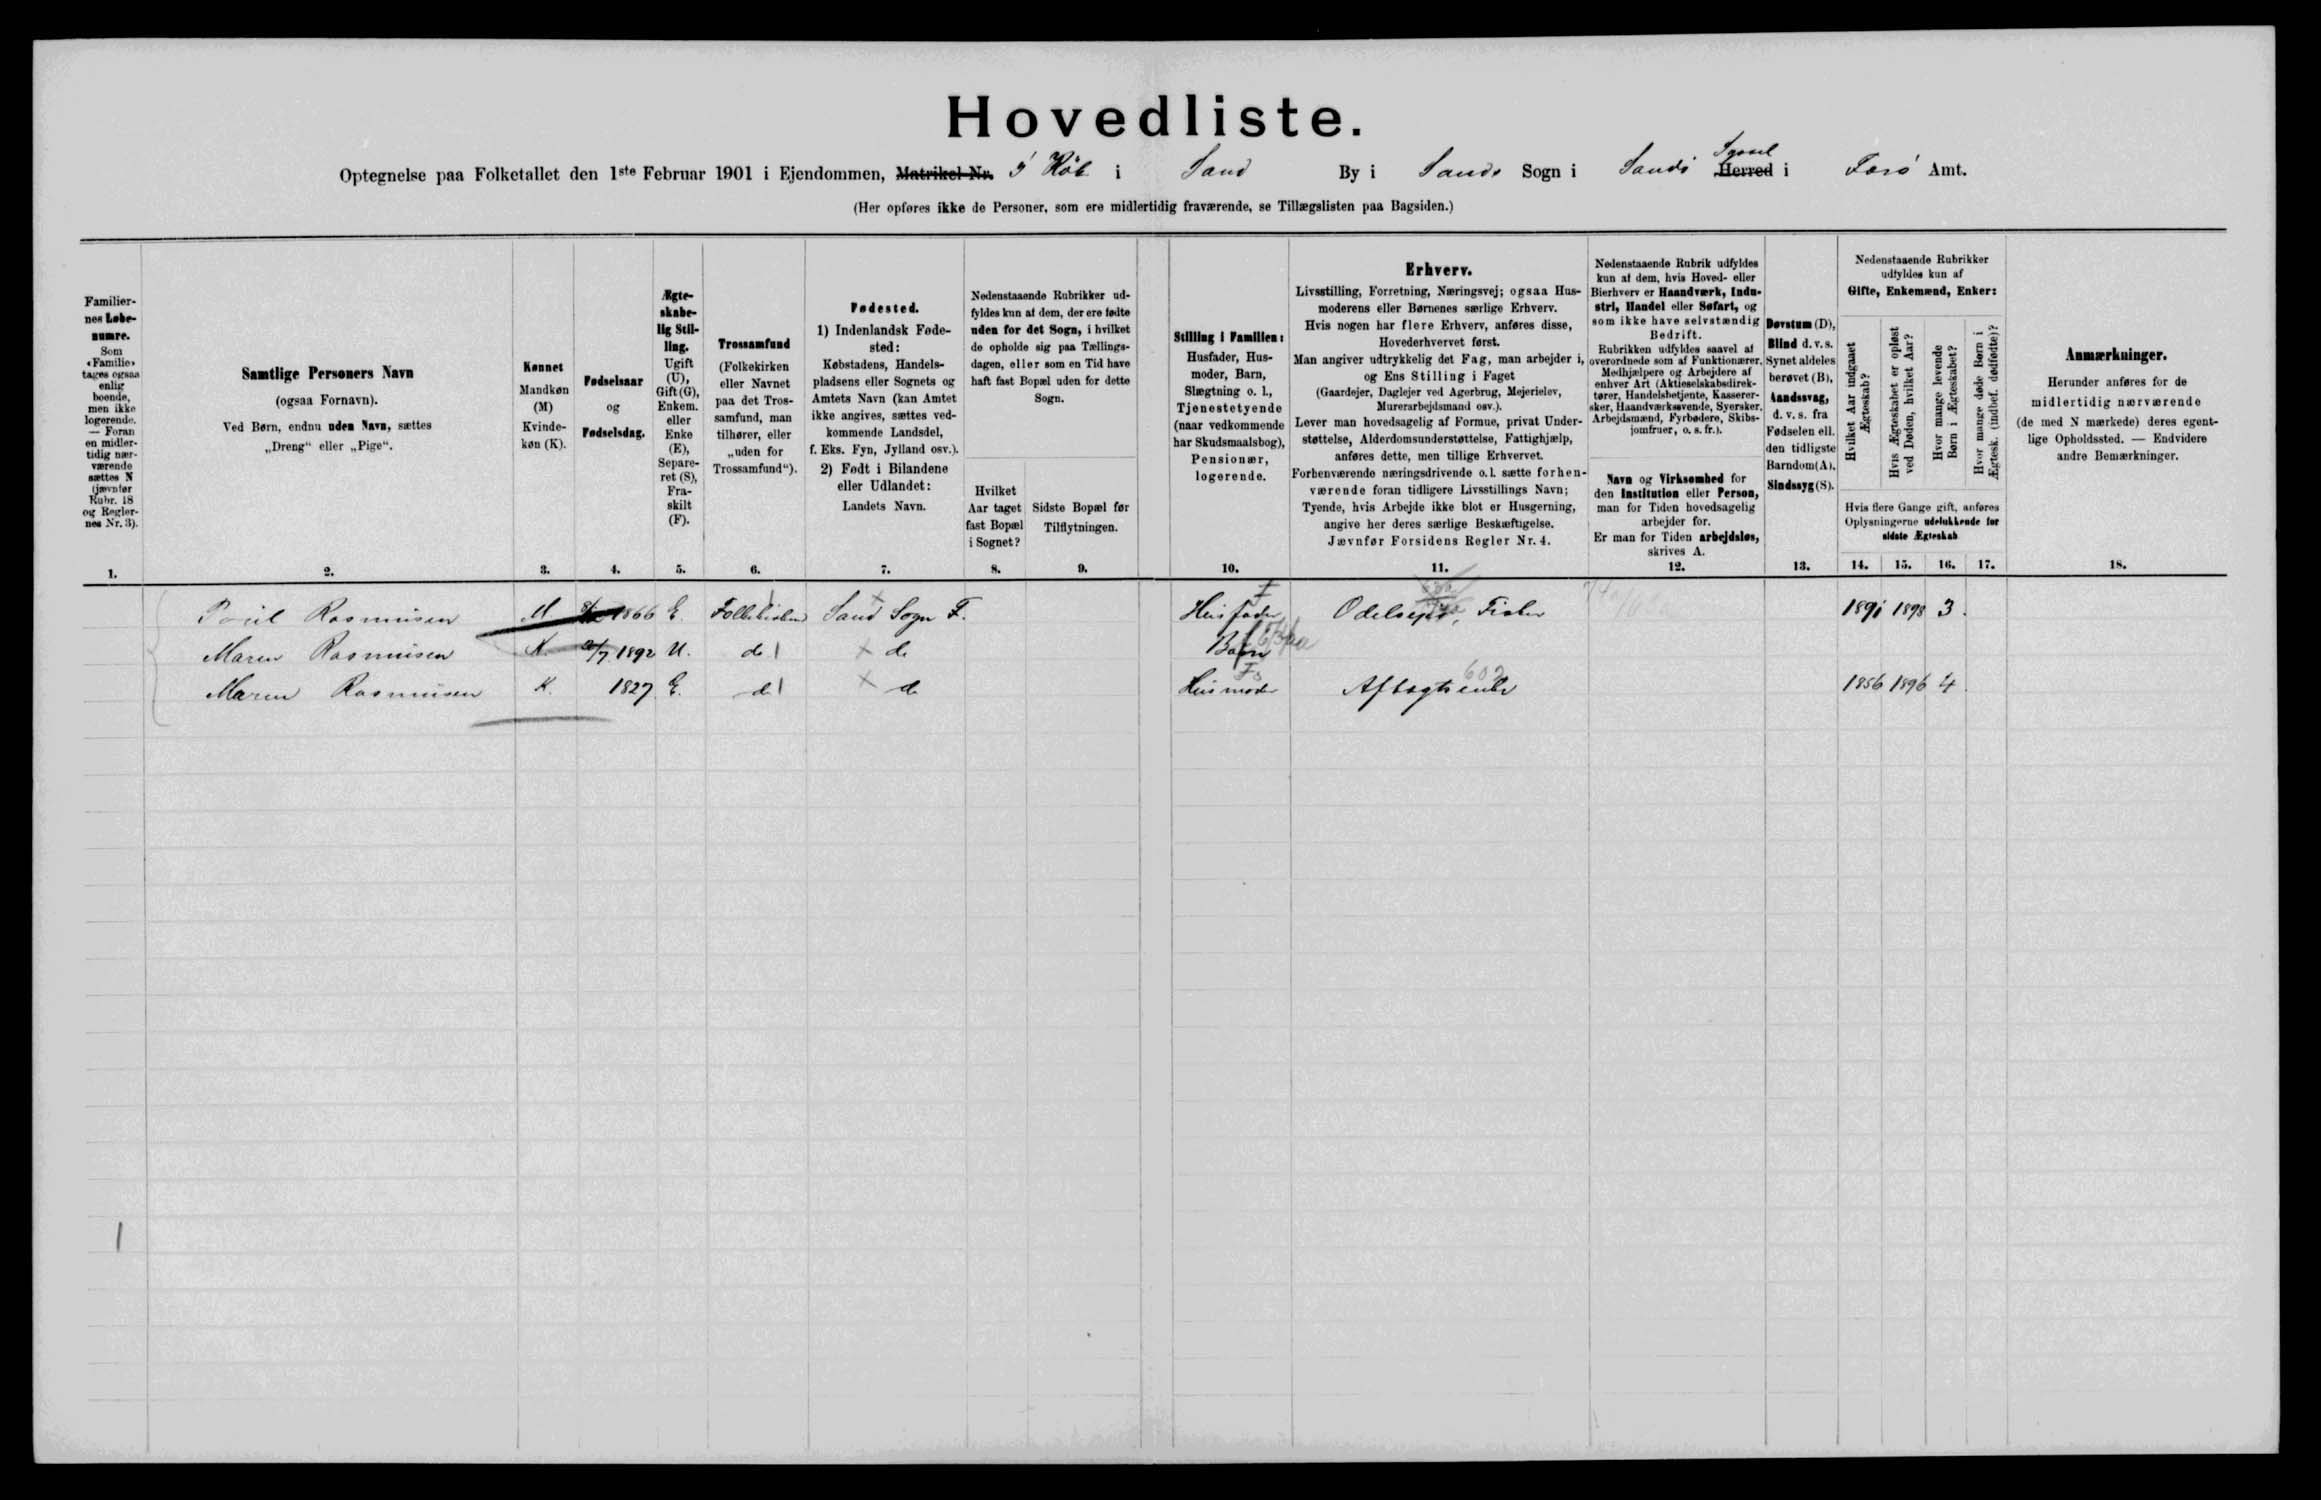 Hovedliste.
Optegnelse paa Folketallet den 1ste Februar 1901 i Ejendommen, Matrikel-Nr. i Køb i Sand By i Sands Sogn i Sandø Syssel Herred i Færø Amt.
(Her opføres ikke de Personer, som ere midlertidig fraværende, se Tillægslisten paa Bagsiden.)
Familier-
nes Løbe-
numre.
Som
«Familie»
tages ogsaa
enlig
boende,
men ikke
logerende.
— Foran
en midler-
tidig nær-
værende
sættes N
(jævnfør
Rubr. 18
og Regler-
nes Nr. 3).
1.
Samtlige Personers Navn
(ogsaa Fornavn).
Ved Børn, endnu uden Navn, sættes
„Dreng“ eller „Pige“.
2.
Kønnet
Mandkøn
(M)
Kvinde-
køn (K).
3.
Fødselsaar
og
Fødselsdag.
4.
Ægte-
skabe-
lig Stil-
ling.
Ugift
(U),
Gift (G),
Enkem.
eller
Enke
(E),
Separe-
ret (S),
Fra-
skilt
(F).
5.
Trossamfund
(Folkekirken
eller Navnet
paa det Tros-
samfund, man
tilhører, eller
„uden for
Trossamfund“).
6.
Fødested.
1) Indenlandsk Føde-
sted:
Købstadens, Handels-
pladsens eller Sognets og
Amtets Navn (kan Amtet
ikke angives, sættes ved-
kommende Landsdel,
f. Eks. Fyn, Jylland osv.).
2) Født i Bilandene
eller Udlandet:
Landets Navn.
7.
Nedenstaaende Rubrikker ud-
fyldes kun af dem, der ere fødte
uden for det Sogn, i hvilket
de opholde sig paa Tællings-
dagen, eller som en Tid have
haft fast Bopæl uden for dette
Sogn.
Hvilket
Aar taget
fast Bopæl
i Sognet?
8.
Sidste Bopæl før
Tilflytningen.
9.
Stilling i Familien:
Husfader, Hus-
moder, Barn,
Slægtning o. l.,
Tjenestetyende
(naar vedkommende
har Skudsmaalsbog),
Pensionær,
logerende.
10.
Erhverv.
Livsstilling, Forretning, Næringsvej; ogsaa Hus-
moderens eller Børnenes særlige Erhverv.
Hvis nogen har flere Erhverv, anføres disse,
Hovederhvervet først.
Man angiver udtrykkelig det Fag, man arbejder i,
og Ens Stilling i Faget
(Gaardejer, Daglejer ved Agerbrug, Mejerielev,
Murerarbejdsmand osv.).
Lever man hovedsagelig af Formue, privat Under-
støttelse, Alderdomsunderstøttelse, Fattighjælp,
anføres dette, men tillige Erhvervet.
Forhenværende næringsdrivende o. l. sætte forhen-
værende foran tidligere Livsstillings Navn;
Tyende, hvis Arbejde ikke blot er Husgerning,
angive her deres særlige Beskæftigelse.
Jævnfør Forsidens Regler Nr. 4.
11.
Nedenstaaende Rubrik udfyldes
kun af dem, hvis Hoved- eller
Bierhverv er Haandværk, Indu-
stri, Handel eller Søfart, og
som ikke have selvstændig
Bedrift.
Rubrikken udfyldes saavel af
overordnede som af Funktionærer,
Medhjælpere og Arbejdere af
enhver Art (Aktieselskabsdirek-
tører, Handelsbetjente, Kasserer-
sker, Haandværkssvende, Syersker,
Arbejdsmænd, Fyrbødere, Skibs-
jomfruer, o. s. fr.).
Navn og Virksomhed for
den Institution eller Person,
man for Tiden hovedsagelig
arbejder for.
Er man for Tiden arbejdsløs,
skrives A.
12.
Døvstum (D),
Blind d. v. s.
Synet aldeles
berøvet (B),
Aandssvag,
d. v. s. fra
Fødselen ell.
den tidligste
Barndom (A),
Sindssyg (S).
13.
Nedenstaaende Rubrikker
udfyldes kun af
Gifte, Enkemænd, Enker:
Hvilket Aar indgaaet
Ægteskab?
Hvis Ægteskabet er opløst
ved Døden, hvilket Aar?
Hvor mange levende
Børn i Ægteskabet?
Hvor mange døde Børn i
Ægtesk. (indbef. dødfødte)?
Hvis flere Gange gift, anføres
Oplysningerne udelukkende for
sidste Ægteskab
14. 15. 16. 17.
Anmærkninger.
Herunder anføres for de
midlertidig nærværende
(de med N mærkede) deres egent-
lige Opholdssted. — Endvidere
andre Bemærkninger.
18.
Poul Rasmusen M 1866 E. Folkekirken Sand Sogn F. Husfader Odelsejer, Fisker 1891 1898 3.
Maren Rasmusen K. 1892 U. do do Barn
Maren Rasmusen K. 1827 E. do do Husmoder Aftægtsenke 602 1856 1896 4